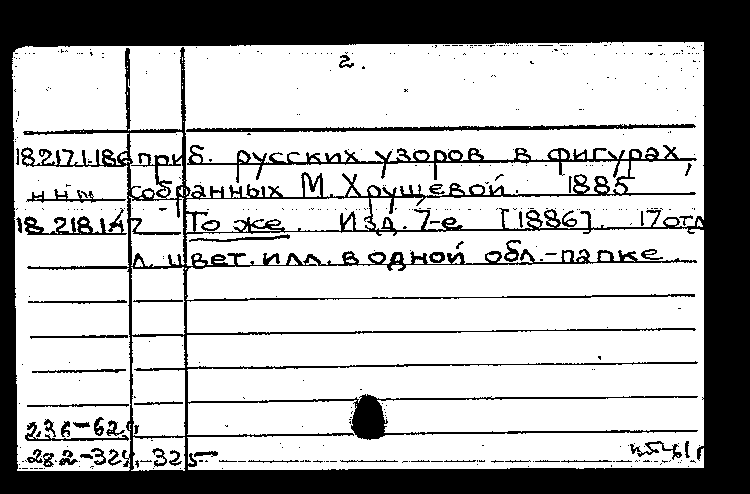 2.
18.217.1.186 приб. русских узоров в фигурах,
собранных М. Хрущевой. 1885
18.218.1.47 То же. Изд. 7-е [1886]. 17 отд
л. цвет. илл. в одной обл.-папке
236-62
282-329, 325